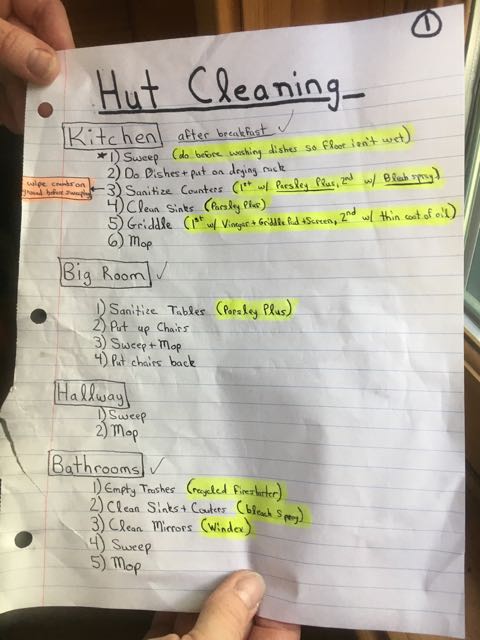 1
Hut Cleaning
Kitchen after breakfast ✓
* 1) Sweep (do before washing dishes so floor isn't wet)
2) Do Dishes + put on drying rack
wipe counters on
ground before sweeping
3) Sanitize Counters (1st w/ Parsley Plus, 2nd w/ Bleach spray)
4) Clean Sinks (Parsley Plus)
5) Griddle (1st w/ Vinegar + Griddle Pad + Screen, 2nd w/ thin coat of oil)
6) Mop
Big Room ✓
1) Sanitize Tables (Parsley Plus)
2) Put up Chairs
3) Sweep + Mop
4) Put chairs back
Hallway
1) Sweep
2) Mop
Bathrooms ✓
1) Empty Trashes (recycled firestarter)
2) Clean Sinks + Couters (bleach spray)
3) Clean Mirrors (Windex)
4) Sweep
5) Mop